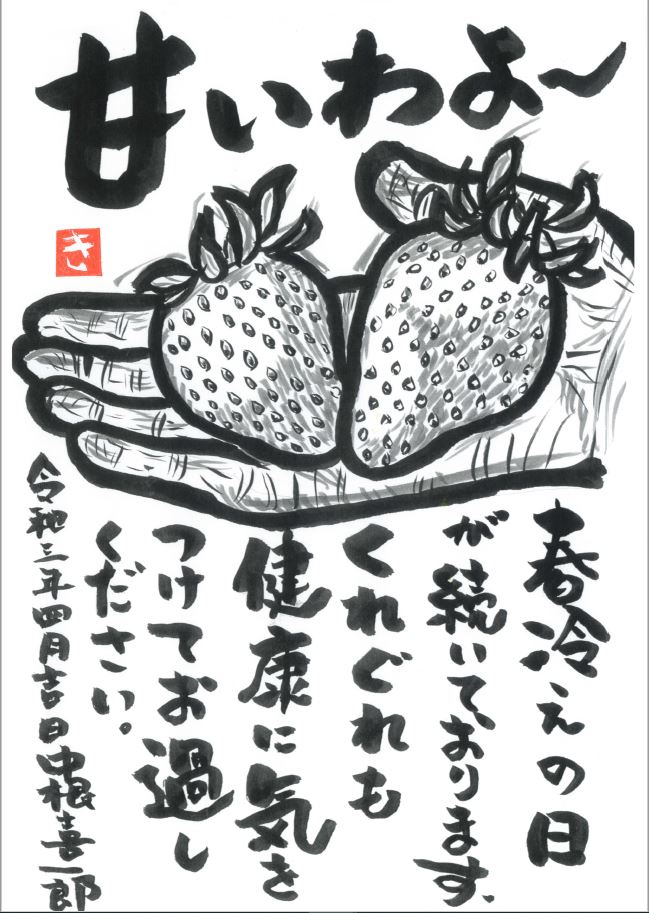 甘いわよ～
き
春冷えの日
が続いております、
くれぐれも
健康に気を
つけてお過し
ください。
令和三年四月吉日中根喜一郎